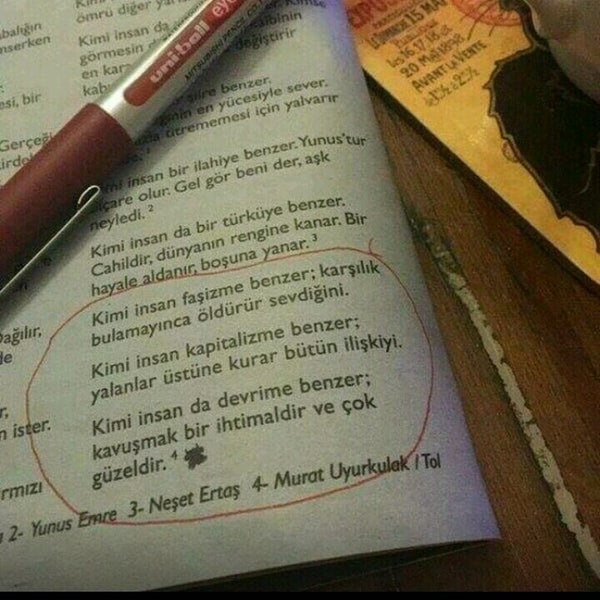 balığın
ömrü diğer
nserken
Kimi insan da
görmesin
en
değiştirir
esi, bir
benzer.
en yücesiyle sever.
titrememesi için yalvarır
Gerçeği
insan bir ilahiye benzer. Yunus'tur
olur. Gel gör beni der, aşk
neyledi. 2
Kimi insan da bir türküye benzer.
Cahildir, dünyanın rengine kanar. Bir
hayale aldanır, boşuna yanar. 3
Kimi insan faşizme benzer; karşılık
bulamayınca öldürür sevdiğini.
Dağılır,
de
Kimi insan kapitalizme benzer;
yalanlar üstüne kurar bütün ilişkiyi.
r,
n ister.
Kimi insan da devrime benzer;
kavuşmak bir ihtimaldir ve çok
güzeldir. 4
rmızı
2- Yunus Emre 3- Neşet Ertaş 4- Murat Uyurkulak / Tol
uni-ball eye
MITSUBISHI PENCIL CO.
LE DIMANCHE 15 MAI
les 16, 17, 18 et
20 MAI 1898
AVANT LA VENTE